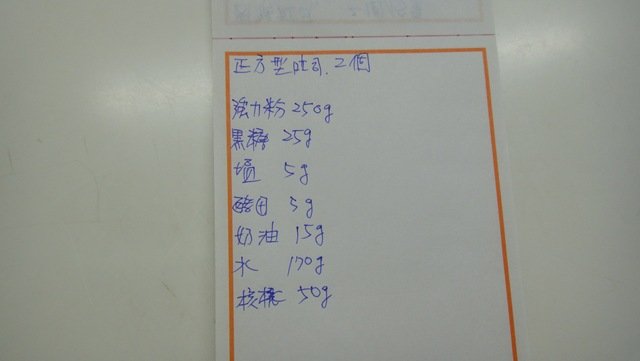 正方型吐司.2個
強力粉 250g
黒糖 25g
塩 5g
酵母 5g
奶油 15g
水 170g
核桃 50g